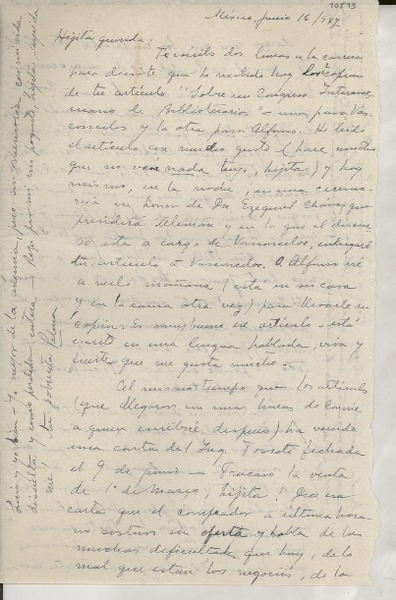 10573
México, junio 16/947
Hijita querida:
Te escribo dos líneas a la carrera
para decirte que he recibido hoy las copias
de tu artículo "Sobre un Congreso Interame
ricano de Bibliotecarios" - una para Vas-
concelos y la otra para Alfonso. He leído
el artículo con mucho gusto (hace mucho
que no veía nada tuyo, hijita) y hoy
mismo, en la noche, en una ceremo-
nia en honor de Dn Ezequiel Chávez que
presidirá Alemán y en la que el discur
so está a cargo de Vasconcelos, entregaré
tu artículo a Vasconcelos. A Alfonso iré
a verlo mañana (está en su casa
y en la cama otra vez) para llevarle su
copia. Es muy bueno ese artículo - está
escrito en una lengua hablada, viva y
fuerte que me gusta mucho.
Al mismo tiempo que los artículos
(que llegaron con unas líneas de Connie
a quien escribiré después) ha venido
una carta del Ing. fechada
el 9 de junio - Fracasó la venta
de 1º de Marzo, hijita! Dice esa
carta que el comprador a última hora
no sostuvo su oferta y habla de las
muchas dificultades que hay, de lo
mal que están los negocios, de la